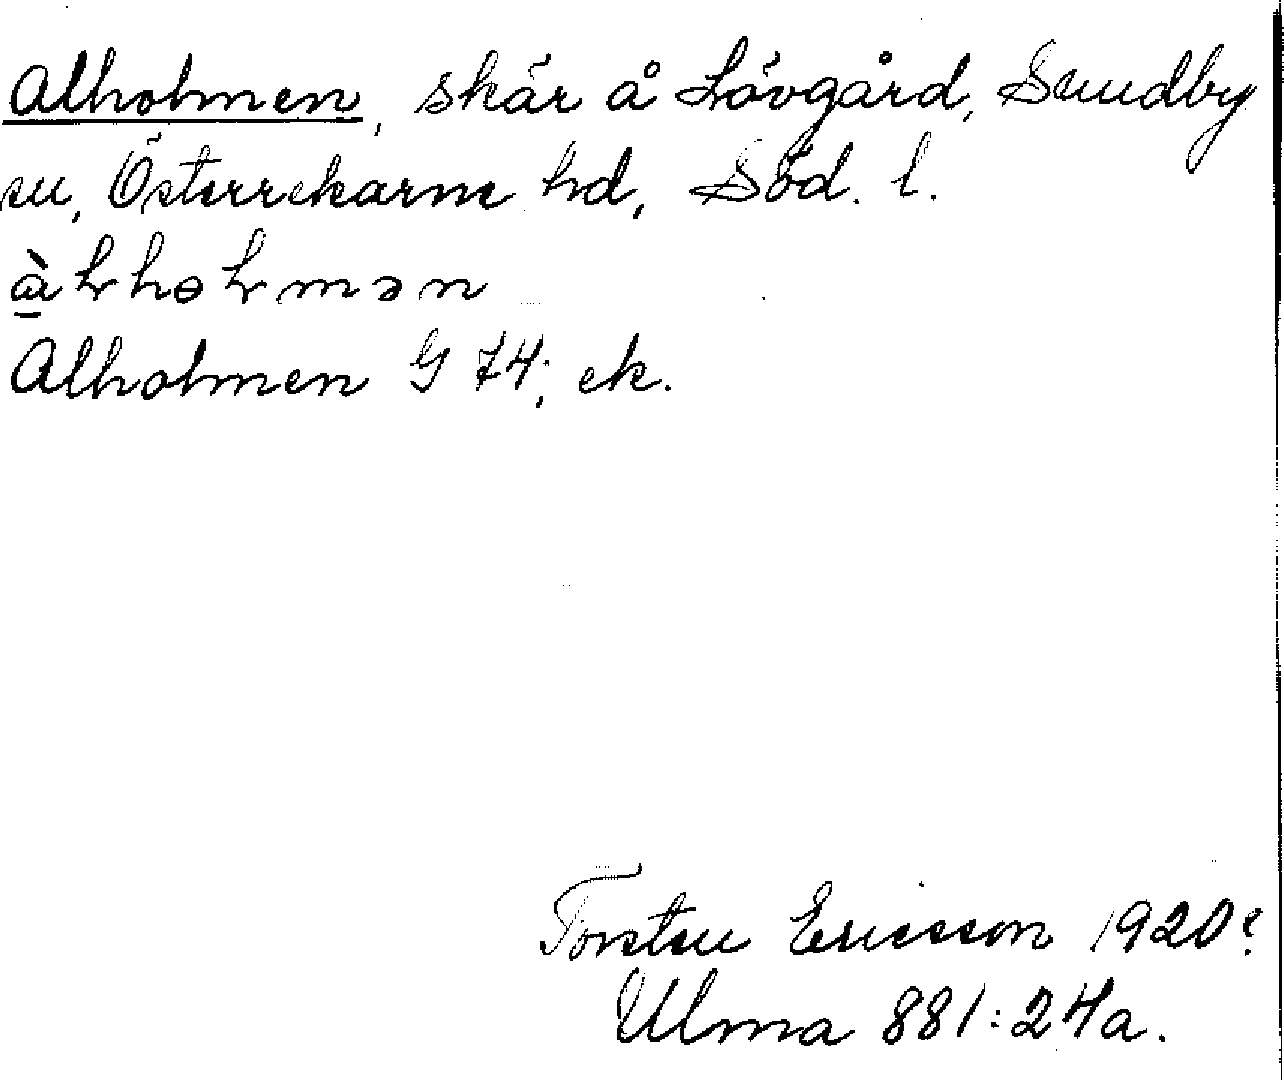 Alholmen, skär å Lövgård, Sundby
sn, Österrekarne hd, Söd. l.
Alholmen G 74; ek.
Torsten Ericsson 1920?
Ulma 881:24a.